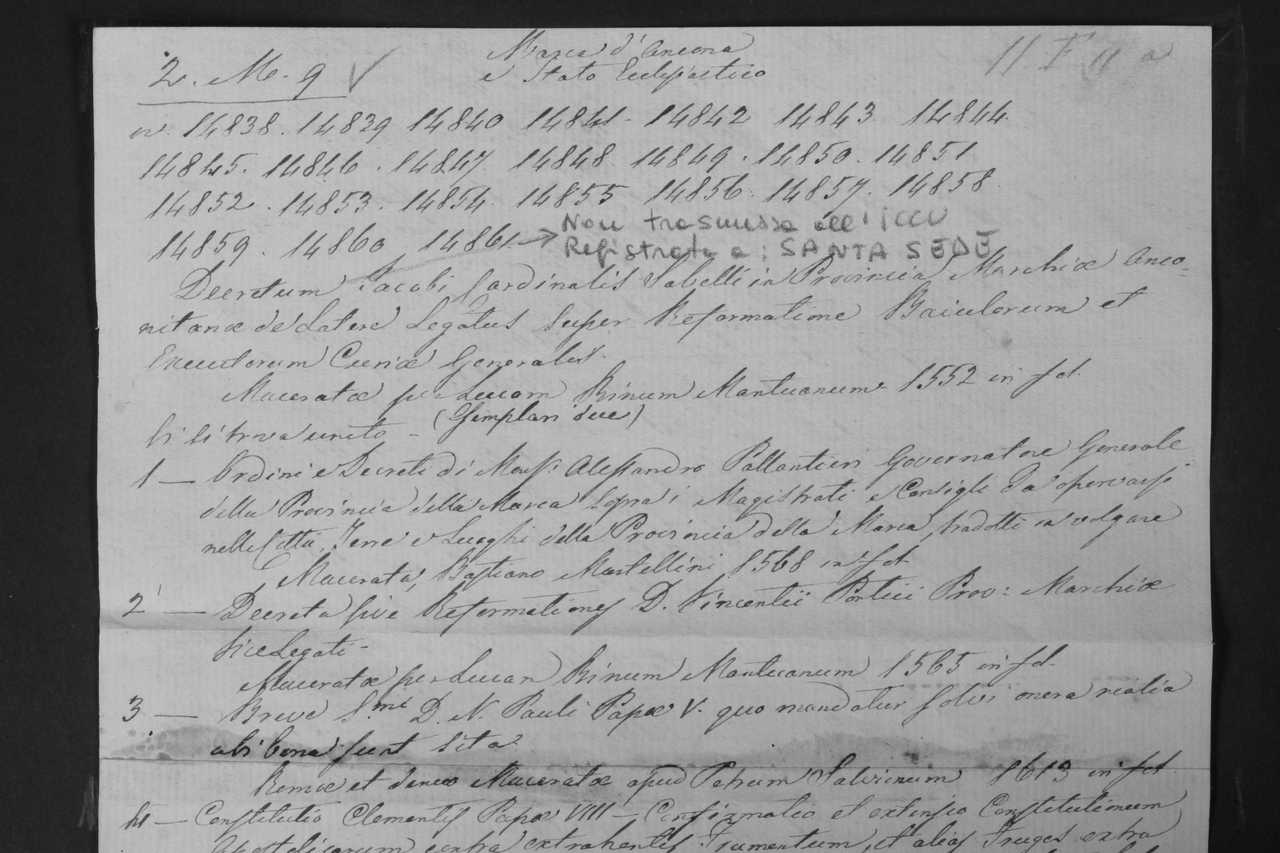 Marca d'Ancona
e Stato Eccleſiastico
2. M. 9 √
nn. 14838. 14839 14840 14841. 14842 14843 14844
14845. 14846. 14847 14848. 14849. 14850. 14851
14852. 14853. 14854 14855 14856. 14857. 14858
14859. 14860 14861 → Non trasmesso all'ICCU
Registrato a: SANTA SEDE
Decretum Jacobi Cardinalis Sabelli in Provincia Marchiæ Anco-
nitanæ de Latere Legatus super Reformatione Baiulorum et
Executorum Curiæ Generalis.
Maceratæ per Lucam Binum Mantuanum 1552 in fol.
Vi si trova unito - (Esemplari due)
1 — Ordini e Decreti di Monſ. Aleſſandro Pallantieri Governatore Generale
della Provincia della Marca sopra i Magistrati e Consigli da oſservarſi
nelle Città, Terre e Luoghi della Provincia della Marca, tradotti in volgare
Macerata, Baſtiano Martellini 1568 in fol
2 — Decreta ſive Reformationes D. Vincentii Portici Prov: Marchiæ
ViceLegati -
Maceratæ per Lucam Binum Mantuanum 1565 in fol.
3 — Breve S.mi D. N. Pauli Papæ V. quo mandatur ſolvi onera realia
ubi bona ſunt sita
Romæ et denuo Maceratæ apud Petrum Salvionum 1613 in fol
4 — Constitutio Clementis Papæ VIII — Confirmatio et extensio Constitutionum
Apostolicarum contra extrahentes Frumentum, et alias Fruges extra